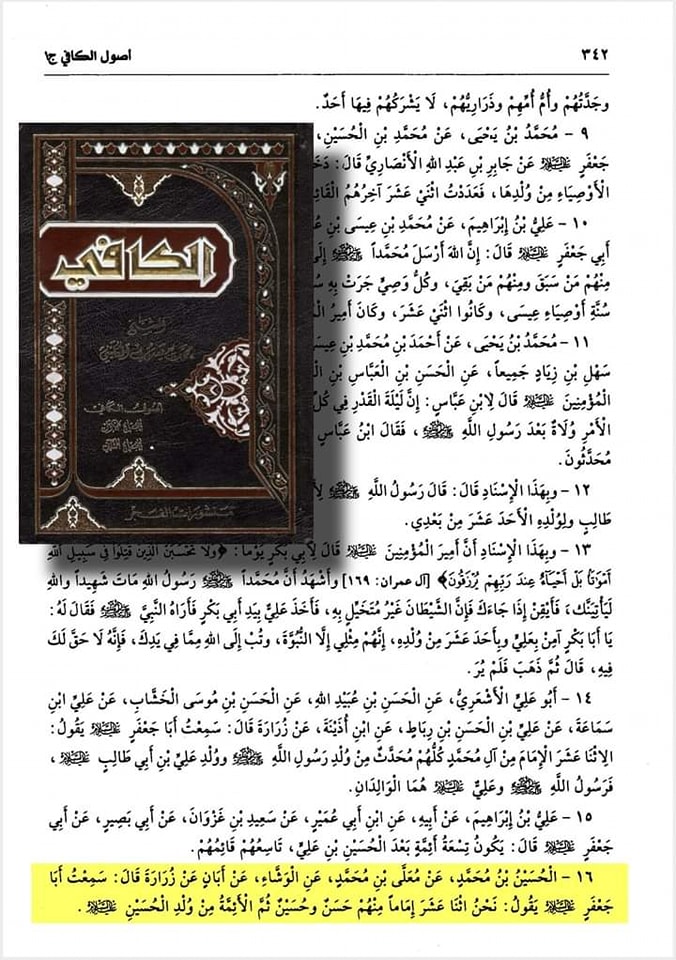 ٣٤٢
أصول الكافي ج١
وجَدَّتُهُمْ وأُمُّ أُمِّهِمْ وذَرَارِيُّهُمْ، لَا يَشْرَكُهُمْ فِيهَا أَحَدٌ.
٩ - مُحَمَّدُ بْنُ يَحْيَى، عَنْ مُحَمَّدِ بْنِ الْحُسَيْنِ،
جَعْفَرٍ عَلَيْهِ السَّلَام عَنْ جَابِرِ بْنِ عَبْدِ اللهِ الْأَنْصَارِيِّ قَالَ:
الْأَوْصِيَاءِ مِنْ وُلْدِهَا، فَعَدَدْتُ اثْنَيْ عَشَرَ آخِرُهُمُ
١٠ - عَلِيُّ بْنُ إِبْرَاهِيمَ، عَنْ مُحَمَّدِ بْنِ عِيسَى بْنِ
أَبِي جَعْفَرٍ عَلَيْهِ السَّلَام قَالَ: إِنَّ اللهَ أَرْسَلَ مُحَمَّداً ﷺ
مِنْهُمْ مَنْ سَبَقَ ومِنْهُمْ مَنْ بَقِيَ، وكُلُّ وَصِيٍّ جَرَتْ بِهِ
سُنَّةِ أَوْصِيَاءِ عِيسَى، وكَانُوا اثْنَيْ عَشَرَ، وكَانَ أَمِيرُ
١١ - مُحَمَّدُ بْنُ يَحْيَى، عَنْ أَحْمَدَ بْنِ مُحَمَّدِ بْنِ
سَهْلِ بْنِ زِيَادٍ جَمِيعاً، عَنِ الْحَسَنِ بْنِ الْعَبَّاسِ بْنِ
الْمُؤْمِنِينَ عَلَيْهِ السَّلَام قَالَ لِابْنِ عَبَّاسٍ: إِنَّ لَيْلَةَ الْقَدْرِ فِي كُلِّ
الْأَمْرِ وُلَاةً بَعْدَ رَسُولِ اللهِ ﷺ، فَقَالَ ابْنُ عَبَّاسٍ
مُحَدَّثُونَ.
١٢ - وبِهَذَا الْإِسْنَادِ قَالَ: قَالَ رَسُولُ اللهِ ﷺ
طَالِبٍ ولِوُلْدِهِ الْأَحَدَ عَشَرَ مِنْ بَعْدِي.
١٣ - وبِهَذَا الْإِسْنَادِ أَنَّ أَمِيرَ الْمُؤْمِنِينَ عَلَيْهِ السَّلَام قَالَ لِأَبِي بَكْرٍ يَوْماً: ﴿وَلَا تَحْسَبَنَّ الَّذِينَ قُتِلُوا فِي سَبِيلِ اللَّهِ
أَمْوَاتًا بَلْ أَحْيَاءٌ عِندَ رَبِّهِمْ يُرْزَقُونَ﴾ [آل عمران: ١٦٩] وأَشْهَدُ أَنَّ مُحَمَّداً ﷺ رَسُولُ اللهِ مَاتَ شَهِيداً واللهِ
لَيَأْتِيَنَّكَ، فَأَيْقِنْ إِذَا جَاءَكَ فَإِنَّ الشَّيْطَانَ غَيْرُ مُتَخَيِّلٍ بِهِ، فَأَخَذَ عَلِيٌّ بِيَدِ أَبِي بَكْرٍ فَأَرَاهُ النَّبِيَّ ﷺ فَقَالَ لَهُ:
يَا أَبَا بَكْرٍ آمِنْ بِعَلِيٍّ وبِأَحَدَ عَشَرَ مِنْ وُلْدِهِ، إِنَّهُمْ مِثْلِي إِلَّا النُّبُوَّةَ، وتُبْ إِلَى اللهِ مِمَّا فِي يَدِكَ، فَإِنَّهُ لَا حَقَّ لَكَ
فِيهِ، قَالَ ثُمَّ ذَهَبَ فَلَمْ يُرَ.
١٤ - أَبُو عَلِيٍّ الْأَشْعَرِيُّ، عَنِ الْحَسَنِ بْنِ عُبَيْدِ اللهِ، عَنِ الْحَسَنِ بْنِ مُوسَى الْخَشَّابِ، عَنْ عَلِيِّ ابْنِ
سَمَاعَةَ، عَنْ عَلِيِّ بْنِ الْحَسَنِ بْنِ رِبَاطٍ، عَنِ ابْنِ أُذَيْنَةَ، عَنْ زُرَارَةَ قَالَ: سَمِعْتُ أَبَا جَعْفَرٍ عَلَيْهِ السَّلَام يَقُولُ:
الِاثْنَا عَشَرَ الْإِمَامَ مِنْ آلِ مُحَمَّدٍ كُلُّهُمْ مُحَدَّثٌ مِنْ وُلْدِ رَسُولِ اللهِ ﷺ ووُلْدِ عَلِيِّ بْنِ أَبِي طَالِبٍ عَلَيْهِ السَّلَام،
فَرَسُولُ اللهِ ﷺ وعَلِيٌّ عَلَيْهِ السَّلَام هُمَا الْوَالِدَانِ.
١٥ - عَلِيُّ بْنُ إِبْرَاهِيمَ، عَنْ أَبِيهِ، عَنِ ابْنِ أَبِي عُمَيْرٍ، عَنْ سَعِيدِ بْنِ غَزْوَانَ، عَنْ أَبِي بَصِيرٍ، عَنْ أَبِي
جَعْفَرٍ عَلَيْهِ السَّلَام قَالَ: يَكُونُ تِسْعَةُ أَئِمَّةٍ بَعْدَ الْحُسَيْنِ بْنِ عَلِيٍّ، تَاسِعُهُمْ قَائِمُهُمْ.
١٦ - الْحُسَيْنُ بْنُ مُحَمَّدٍ، عَنْ مُعَلَّى بْنِ مُحَمَّدٍ، عَنِ الْوَشَّاءِ، عَنْ أَبَانٍ عَنْ زُرَارَةَ قَالَ: سَمِعْتُ أَبَا
جَعْفَرٍ عَلَيْهِ السَّلَام يَقُولُ: نَحْنُ اثْنَا عَشَرَ إِمَاماً مِنْهُمْ حَسَنٌ وحُسَيْنٌ ثُمَّ الْأَئِمَّةُ مِنْ وُلْدِ الْحُسَيْنِ عَلَيْهِ السَّلَام.
الكافي
منشورات الفجر